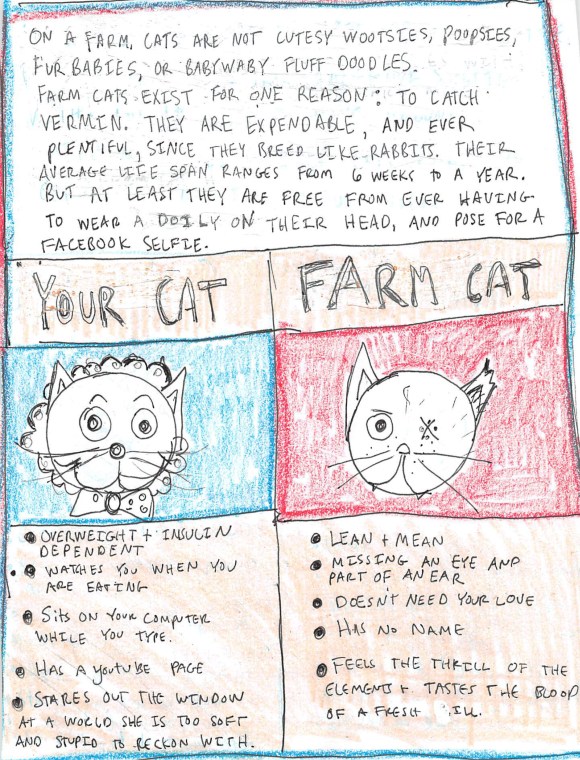 ON A FARM, CATS ARE NOT CUTESY WOOTSIES, POOPSIES,
FUR BABIES, OR BABYWABY FLUFF DOODLES.
FARM CATS EXIST FOR ONE REASON: TO CATCH
VERMIN. THEY ARE EXPENDABLE, AND EVER
PLENTIFUL, SINCE THEY BREED LIKE RABBITS. THEIR
AVERAGE LIFE SPAN RANGES FROM 6 WEEKS TO A YEAR.
BUT AT LEAST THEY ARE FREE FROM EVER HAVING
TO WEAR A DOILY ON THEIR HEAD, AND POSE FOR A
FACEBOOK SELFIE.
YOUR CAT
OVERWEIGHT + INSULIN
DEPENDENT
WATCHES YOU WHEN YOU
ARE EATING
SITS ON YOUR COMPUTER
WHILE YOU TYPE.
HAS A YOUTUBE PAGE
STARES OUT THE WINDOW
AT A WORLD SHE IS TOO SOFT
AND STUPID TO RECKON WITH.
FARM CAT
LEAN + MEAN
MISSING AN EYE AND
PART OF AN EAR
DOESN'T NEED YOUR LOVE
HAS NO NAME
FEELS THE THRILL OF THE
ELEMENTS + TASTES THE BLOOD
OF A FRESH